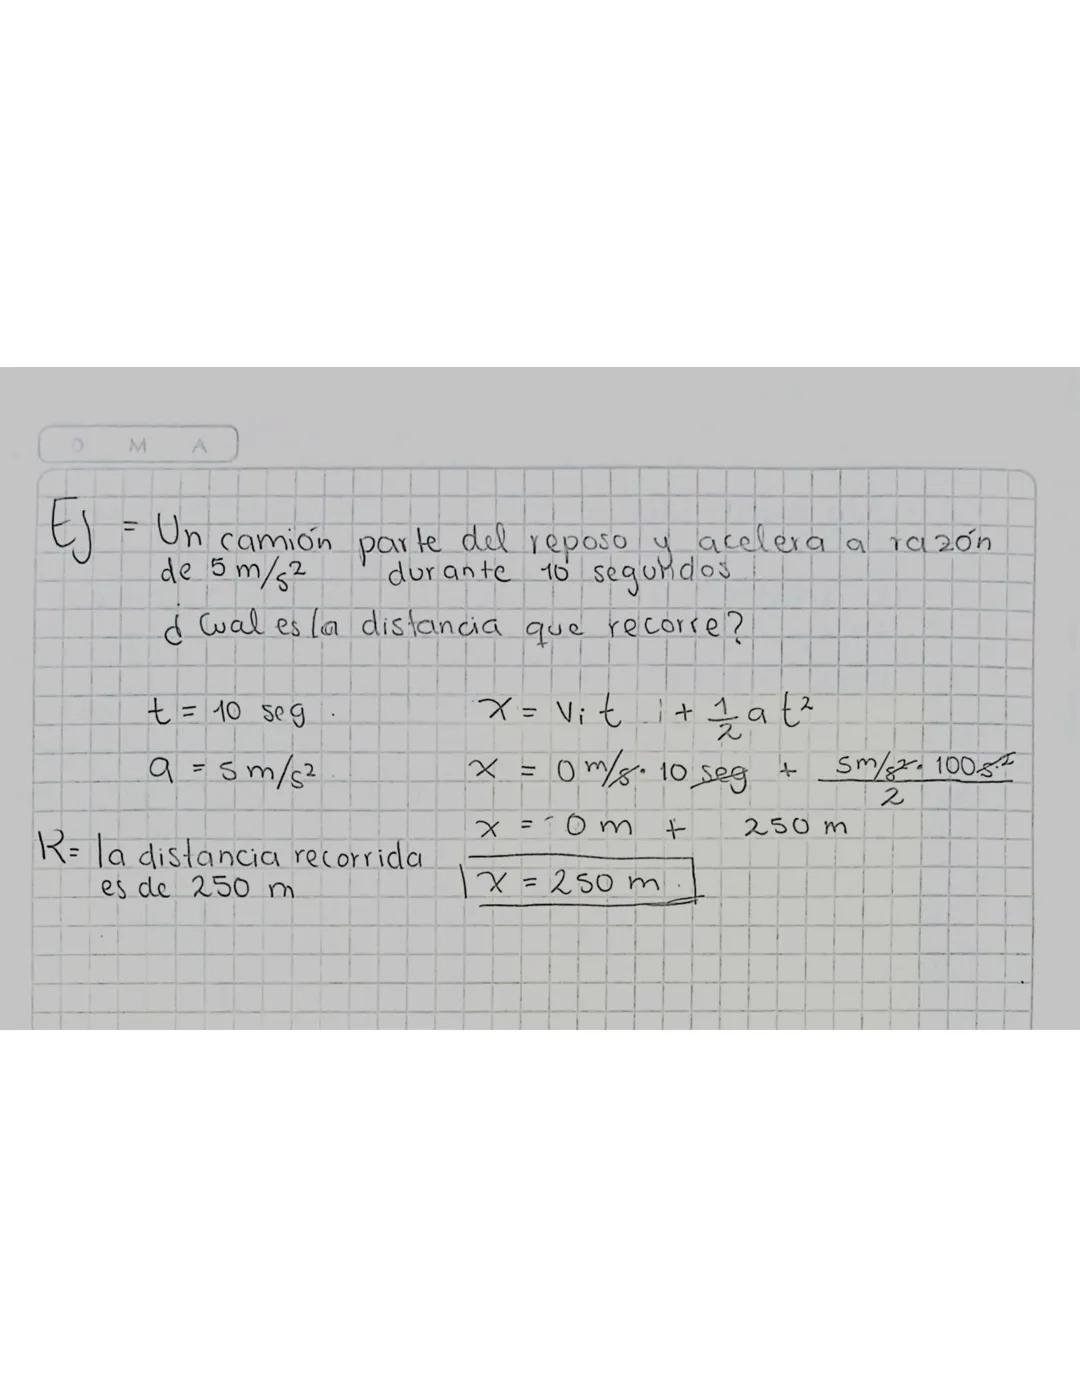 D M A
Ej = Un camión parte del reposo y acelera a razón
de 5 m/s² durante 10 segundos
¿Cual es la distancia que recorre?
t = 10 seg.
a = 5 m/s²
x = Vi t + 1/2 a t²
x = 0 m/s · 10 seg + 5m/s² · 100 s² / 2
x = 0 m + 250 m
x = 250 m.
R= la distancia recorrida
es de 250 m